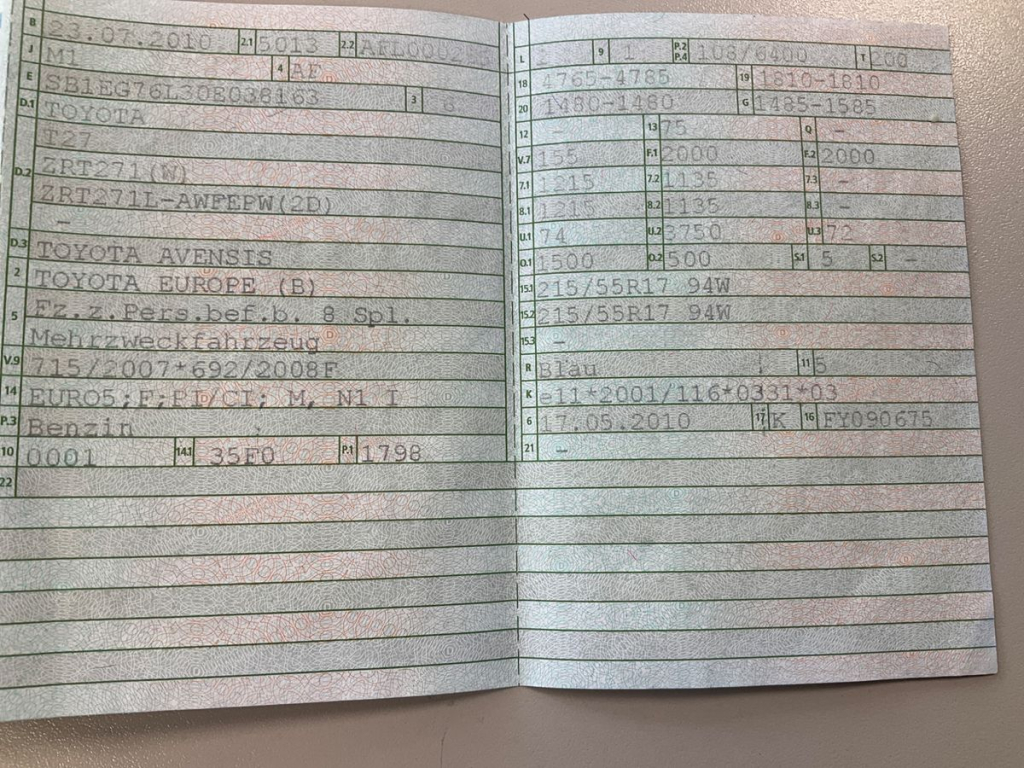 B 23.07.2010 2.1 5013 2.2
J M1 4 AF
E SB1EG76L30E038163 3 8
D.1 TOYOTA
T27
D.2 ZRT271(W)
ZRT271L-AWFEPW(2D)
–
D.3 TOYOTA AVENSIS
2 TOYOTA EUROPE (B)
5 Fz.z.Pers.bef.b. 8 Spl.
Mehrzweckfahrzeug
V.9 715/2007*692/2008F
14 EURO5;F;PI/CI; M, N1 I
P.3 Benzin
10 0001 14.1 35F0 P.1 1798
22
L 9 1 P.2 P.4 108/6400 T 200
18 4765-4785 19 1810-1810
20 1480-1480 G 1485-1585
12 – 13 75 Q –
V.7 155 F.1 2000 F.2 2000
7.1 1215 7.2 1135 7.3 –
8.1 1215 8.2 1135 8.3 –
U.1 74 U.2 3750 U.3 72
O.1 1500 O.2 500 S.1 5 S.2 –
15.1 215/55R17 94W
15.2 215/55R17 94W
15.3 –
R Blau 11 5
K e11*2001/116*0331*03
6 17.05.2010 17 K 16 FY090675
21 –